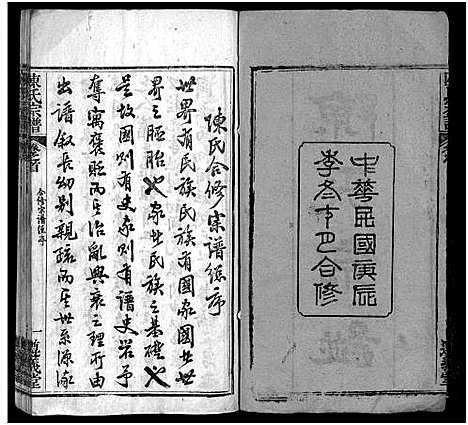 中華民國庚辰
季冬中巳合修
陳氏合修宗譜總序
世界有民族民族有國家國者世
界之胚胎也家者民族之基礎也
是故國則有史家則有譜史者予
奪寓褒貶而其治亂興衰之理所由
出譜叙長幼別親疏而其世系源流
陳氏宗譜
卷首
合修宗譜總序
一